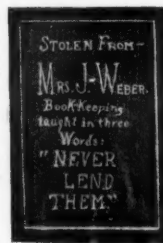 STOLEN FROM-
MRS. J. WEBER.
Book-Keeping
taught in three
Words:
"NEVER
LEND
THEM."